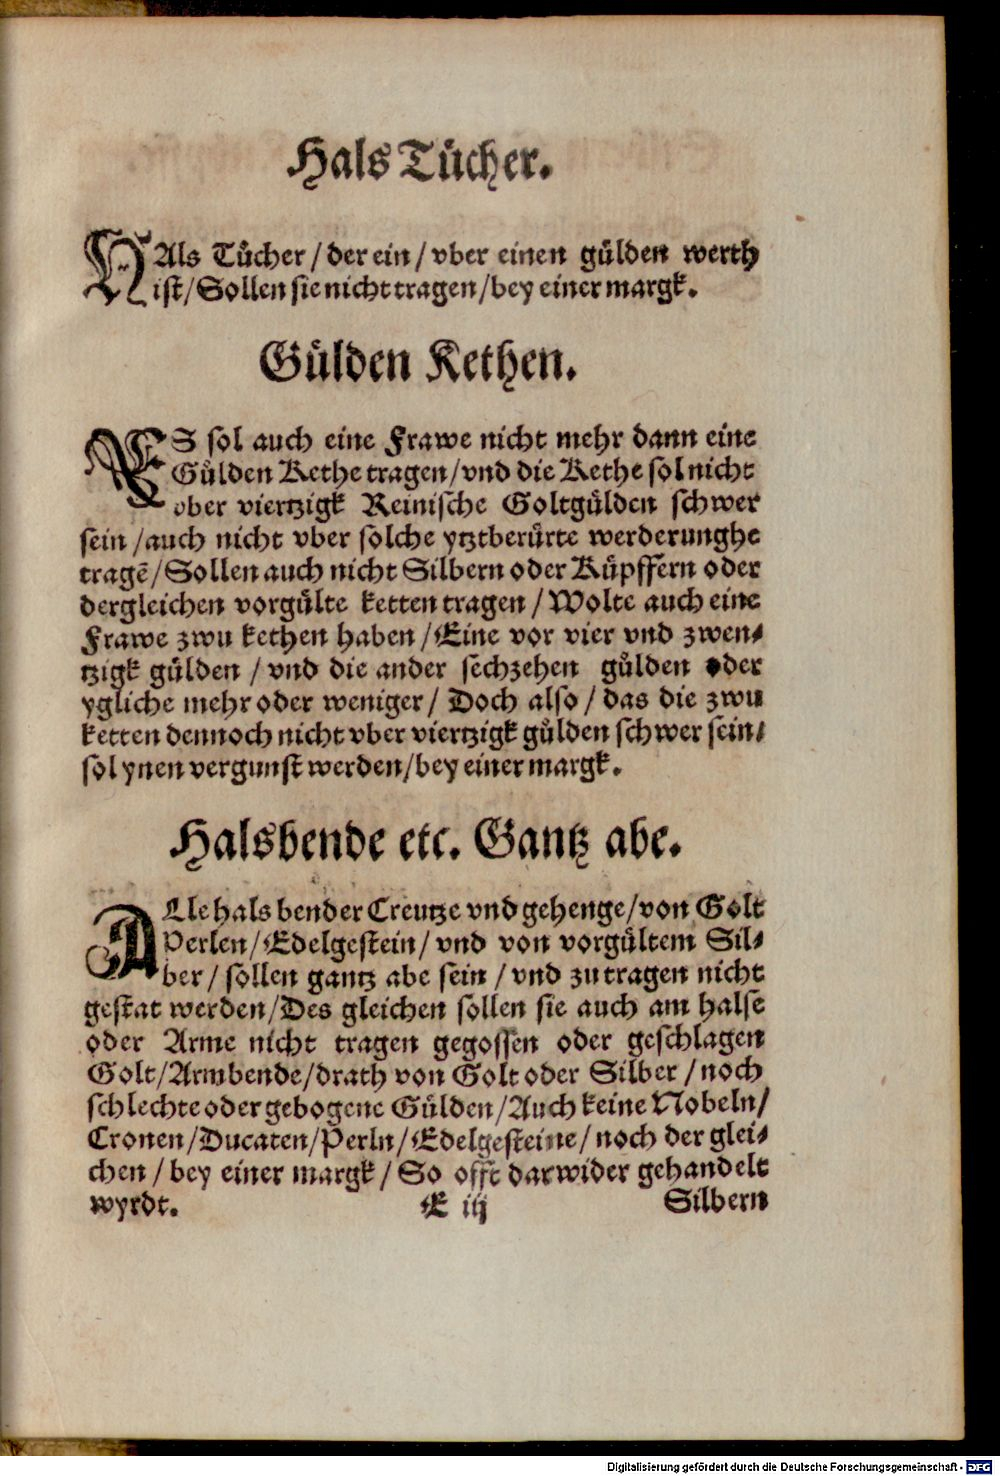 Hals Tücher.
HAls Tücher / der ein / vber einen gülden werth
ist / Sollen sie nicht tragen / bey einer margk.
Gülden Kethen.
ES sol auch eine Frawe nicht mehr dann eine
Gülden Kethe tragen / vnd die Kethe sol nicht
ober viertzigk Reinische Goltgülden schwer
sein / auch nicht vber solche ytztberürte werderunghe
tragē / Sollen auch nicht Silbern oder Küpffern oder
dergleichen vorgülte ketten tragen / Wolte auch eine
Frawe zwu kethen haben / Eine vor vier vnd zwen-
tzigk gülden / vnd die ander sechzehen gülden oder
ygliche mehr oder weniger / Doch also / das die zwu
ketten dennoch nicht vber viertzigk gülden schwer sein /
sol ynen vergunst werden / bey einer margk.
Halsbende etc. Gantz abe.
ALle hals bender Creutze vnd gehenge / von Golt
Perlen / Edelgestein / vnd von vorgültem Sil-
ber / sollen gantz abe sein / vnd zu tragen nicht
gestat werden / Des gleichen sollen sie auch am halse
oder Arme nicht tragen gegossen oder geschlagen
Golt / Armbende / drath von Golt oder Silber / noch
schlechte oder gebogene Gülden / Auch keine Nobeln /
Cronen / Ducaten / Perln / Edelgesteine / noch der glei-
chen / bey einer margk / So offt darwider gehandelt
wyrdt. E iij Silbern
Digitalisierung gefördert durch die Deutsche Forschungsgemeinschaft - DFG